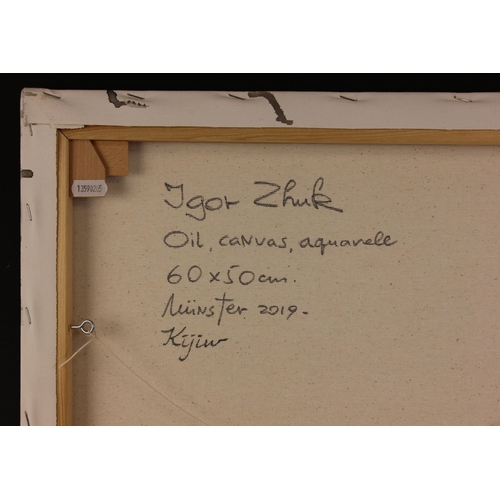 Igor Zhuk
Oil, canvas, aquarell
60x50cm.
Münster 2019.
Kijiw